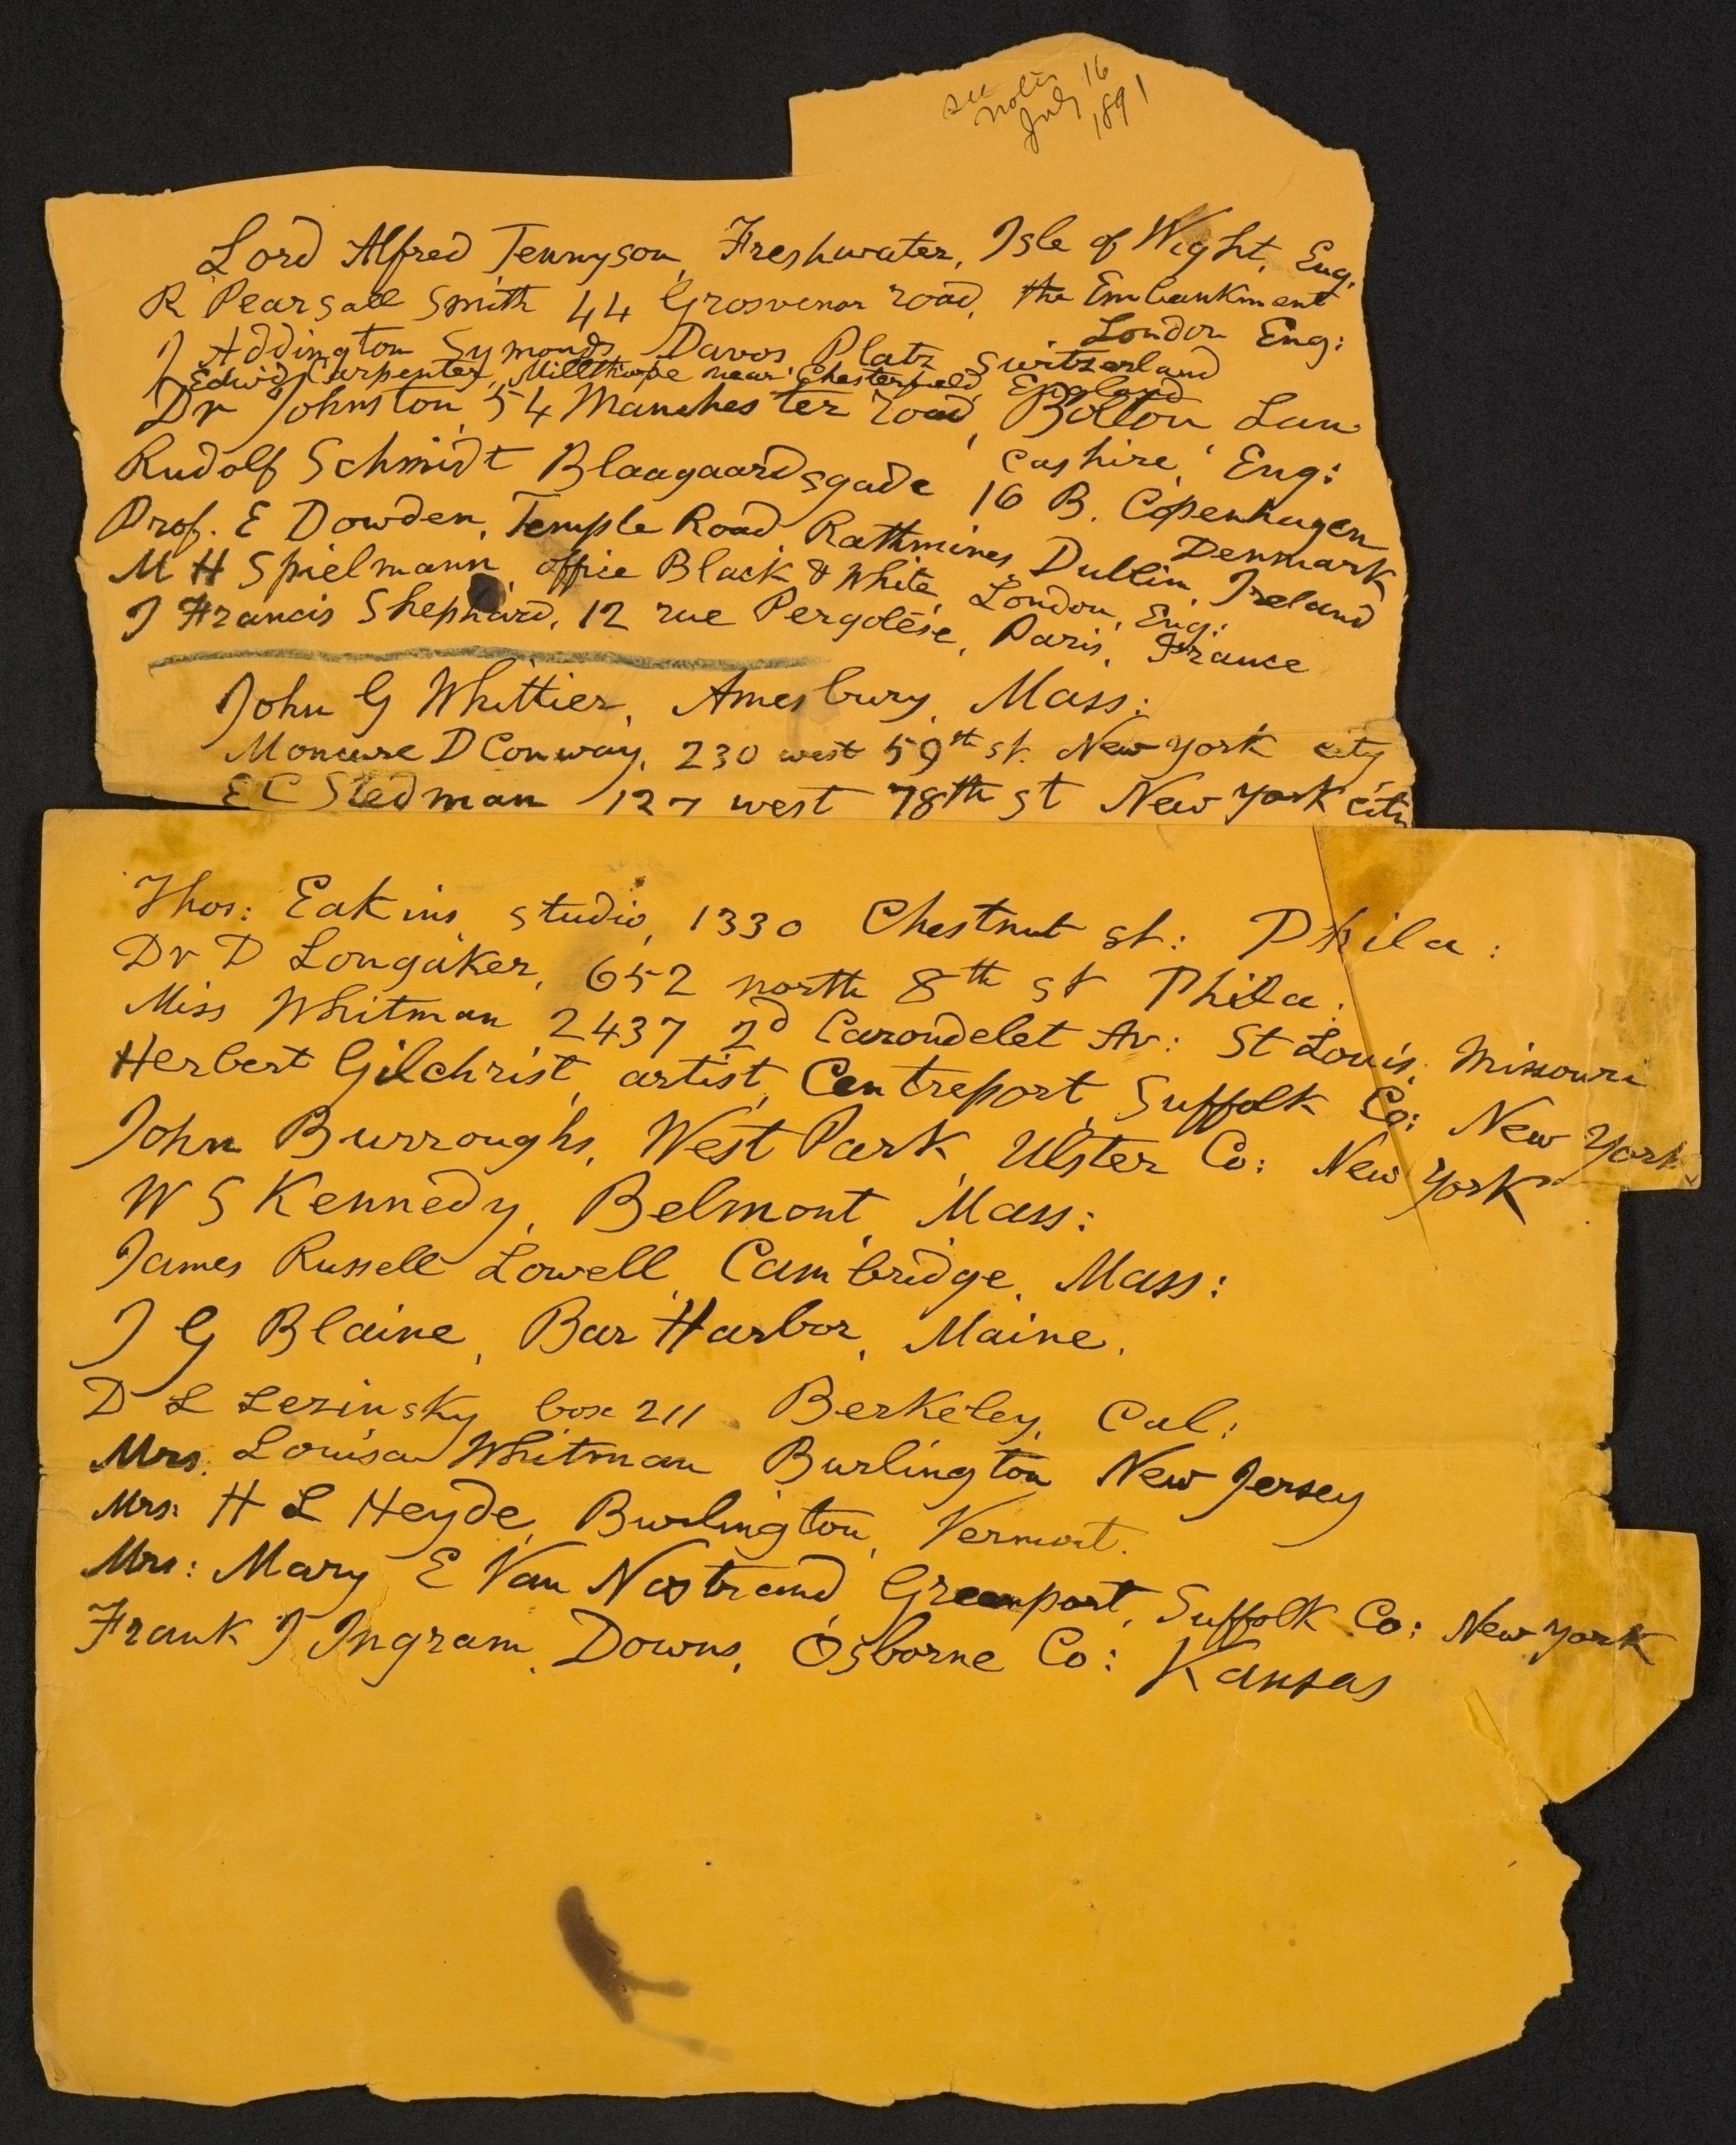 see
notes
July 16
1891
Lord Alfred Tennyson, Freshwater, Isle of Wight, Eng.
R Pearsall Smith 44 Grosvenor road, the Embankment
London Eng:
J Addington Symonds Davos Platz Switzerland
Edw'd Carpenter, Millthorpe near Chesterfield England
Dr Johnston, 54 Manchester road, Bolton Lan
cashire, Eng:
Rudolf Schmidt Blaagaardsgade 16 B. Copenhagen
Denmark
Prof. E Dowden, Temple Road Rathmines, Dublin, Ireland
M H Spielmann, office Black & White, London, Eng:
J Francis Shephard, 12 rue Pergolèse, Paris, France
John G Whittier, Amesbury, Mass:
Moncure D Conway, 230 west 59th st. New York city
E C Stedman 127 west 78th st New York city
Thos: Eakins, studio, 1330 Chestnut st: Phila:
Dr D Longaker, 652 north 8th st Phila:
Miss Whitman 2437 2d Carondelet Av: St Louis, Missouri
Herbert Gilchrist, artist, Centreport, Suffolk Co: New York
John Burroughs, West Park, Ulster Co: New York
W S Kennedy, Belmont, Mass:
James Russell Lowell, Cambridge, Mass:
J G Blaine, Bar Harbor, Maine.
D L Lezinsky box 211 Berkeley, Cal:
Mrs. Louisa Whitman Burlington New Jersey
Mrs: H L Heyde, Burlington, Vermont.
Mrs: Mary E Van Nostrand, Greenport, Suffolk Co: New York
Frank J Ingram, Downs, Osborne Co: Kansas